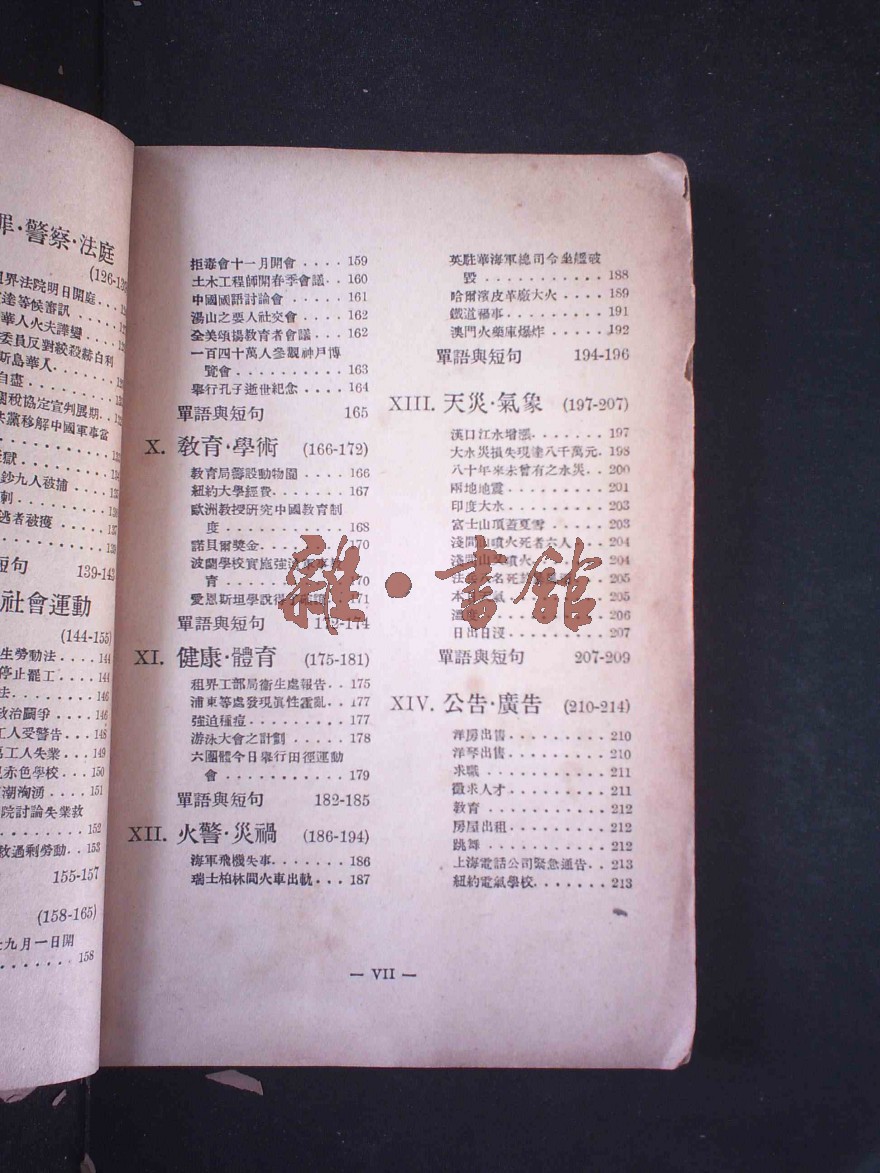 罪·警察·法庭
(126-13
租界法院明日開庭
達等候審訊
華人火夫譁變
委員反對絞殺赫白利
斯島華人
自盡
關稅協定宣判展期
共黨移解中國軍事當
獄
鈔九人被捕
刺
逃者被獲
短句 139-143
社會運動
(144-155)
生勞動法.... 144
停止罷工.... 144
法...... 146
政治鬭爭.... 146
工人受警告... 148
萬工人失業... 149
赤色學校... 150
潮洶湧.... 151
院討論失業救
152
救過剩勞動.. 153
155-157
(158-165)
九月一日開
158
拒毒會十一月開會.... 159
土木工程師開春季會議.. 160
中國國語討論會..... 161
湯山之要人社交會.... 162
全美頌揚教育者會議... 162
一百四十萬人參觀神戶博
覽會........... 163
舉行孔子逝世紀念.... 164
單語與短句 165
X. 教育·學術 (166-172)
教育局籌設動物園.... 166
紐約大學經費...... 167
歐洲教授研究中國教育制
度............ 168
諾貝爾獎金....... 170
波蘭學校實施強
育 170
愛恩斯坦學說 171
單語與短句 172-174
XI. 健康·體育 (175-181)
租界工部局衞生處報告.. 175
浦東等處發現眞性霍亂.. 177
強迫種痘........ 177
游泳大會之計劃..... 178
六團體今日舉行田徑運動
會............ 179
單語與短句 182-185
XII. 火警·災禍 (186-194)
海軍飛機失事...... 186
瑞士柏林間火車出軌... 187
英駐華海軍總司令坐艦被
毀............ 188
哈爾濱皮革廠大火.... 189
鐵道禍事........ 191
澳門火藥庫爆炸..... 192
單語與短句 194-196
XIII. 天災·氣象 (197-207)
漢口江水增漲...... 197
大水災損失現達八千萬元. 198
八十年來未曾有之水災.. 200
兩地地震........ 201
印度大水........ 203
富士山頂蓋夏雪..... 203
淺間山噴火死者六人... 204
淺間山又噴火...... 204
法 名死 205
本 氣 205
溫度.......... 206
日出日沒........ 207
單語與短句 207-209
XIV. 公告·廣告 (210-214)
洋房出售........ 210
洋琴出售........ 210
求職.......... 211
徵求人才........ 211
教育.......... 212
房屋出租........ 212
跳舞.......... 212
上海電話公司緊急通告.. 213
紐約電氣學校...... 213
雜·書館
— VII —